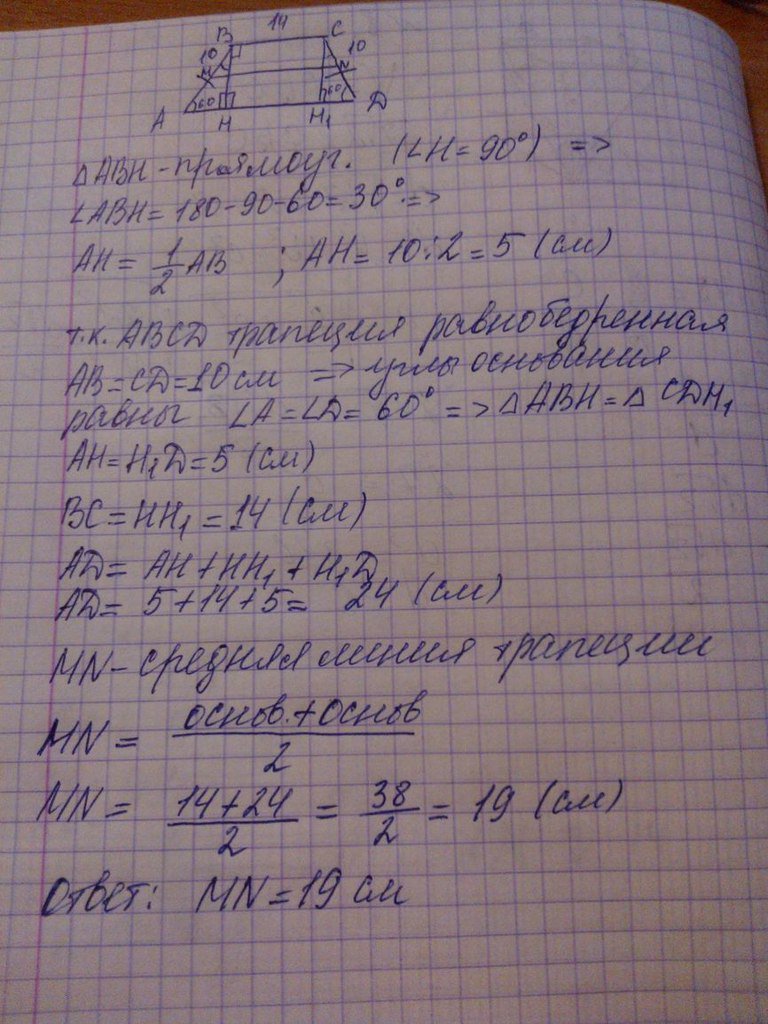 14
B C
10 10
M N
60 60
A H H₁ D
△ABH - прямоуг. (∠H = 90°) =>
∠ABH = 180-90-60 = 30° =>
AH = 1/2 AB ; AH = 10:2 = 5 (см)
т.к. ABCD трапеция равнобедренная
AB = CD = 10 см => углы основания
равны ∠A = ∠D = 60° => △ABH = △CDH₁
AH = H₁D = 5 (см)
BC = HH₁ = 14 (см)
AD = AH + HH₁ + H₁D
AD = 5 + 14 + 5 = 24 (см)
MN - средняя линия трапеции
MN = (основ. + основ)/2
MN = (14 + 24)/2 = 38/2 = 19 (см)
Ответ: MN = 19 см